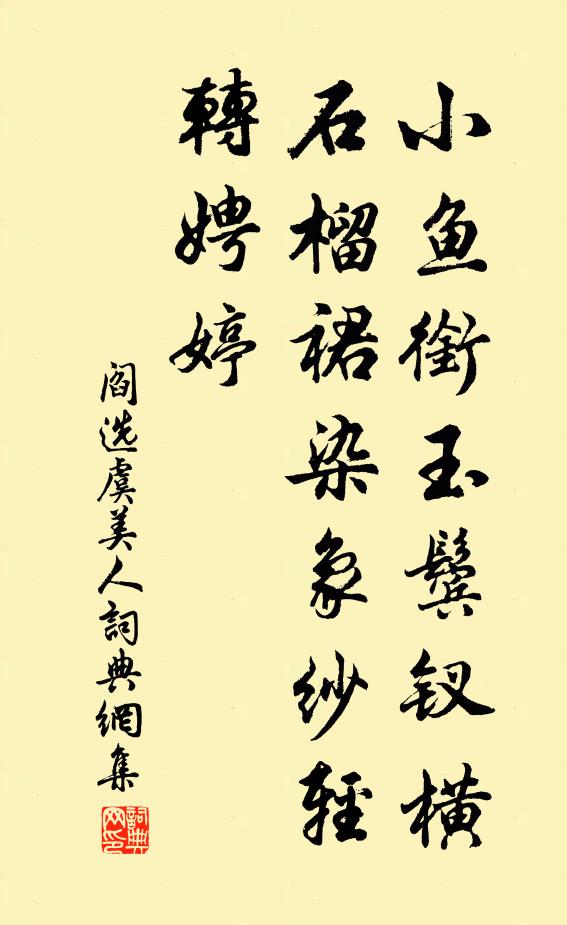 小鱼銜玉鬓钗横
石榴裙染象纱轻
轉娉婷
阎选虞美人詞典網集
詞典网印